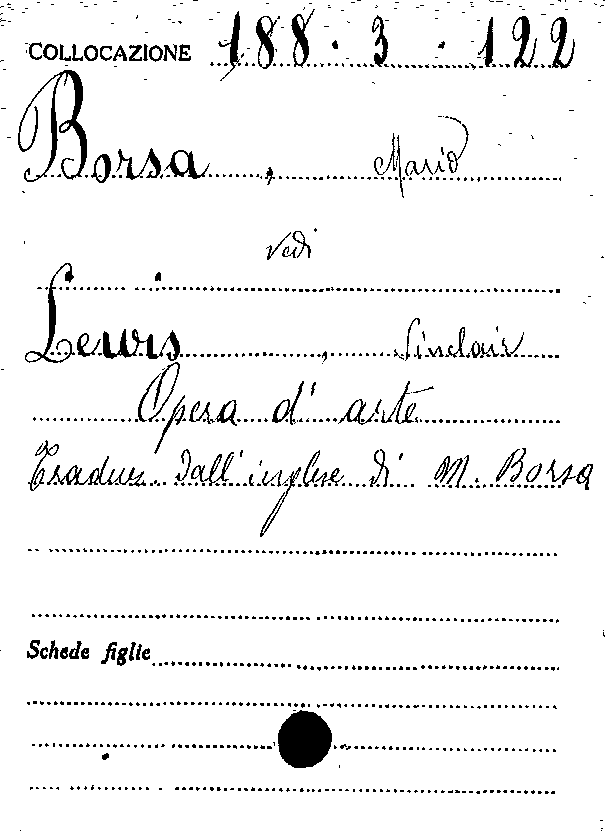 COLLOCAZIONE 188.3.122
Borsa, Mario
vedi
Lewis, Sinclair
Opera d'arte
Traduz. dall'inglese di M. Borsa
Schede figlie